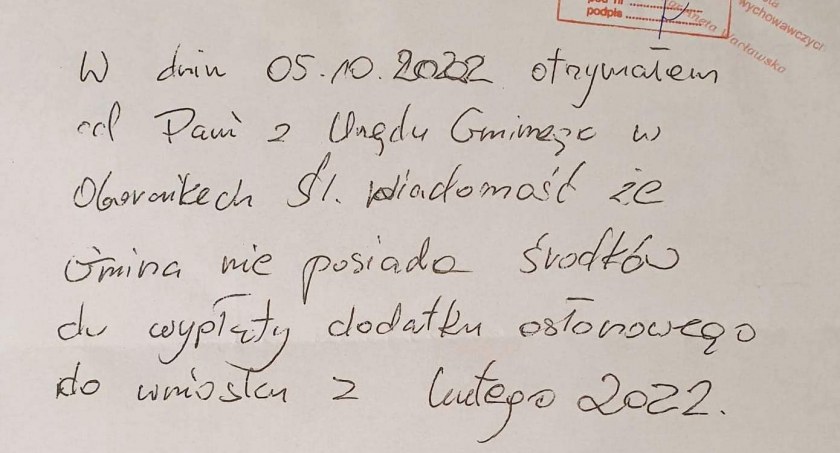 podpis
wychowawczyci
W dniu 05.10.2022 otrzymałem
od Pani z Urzędu Gminnego w
Obornikach Śl. wiadomość że
Gmina nie posiada środków
do wypłaty dodatku osłonowego
do wniosku z lutego 2022.